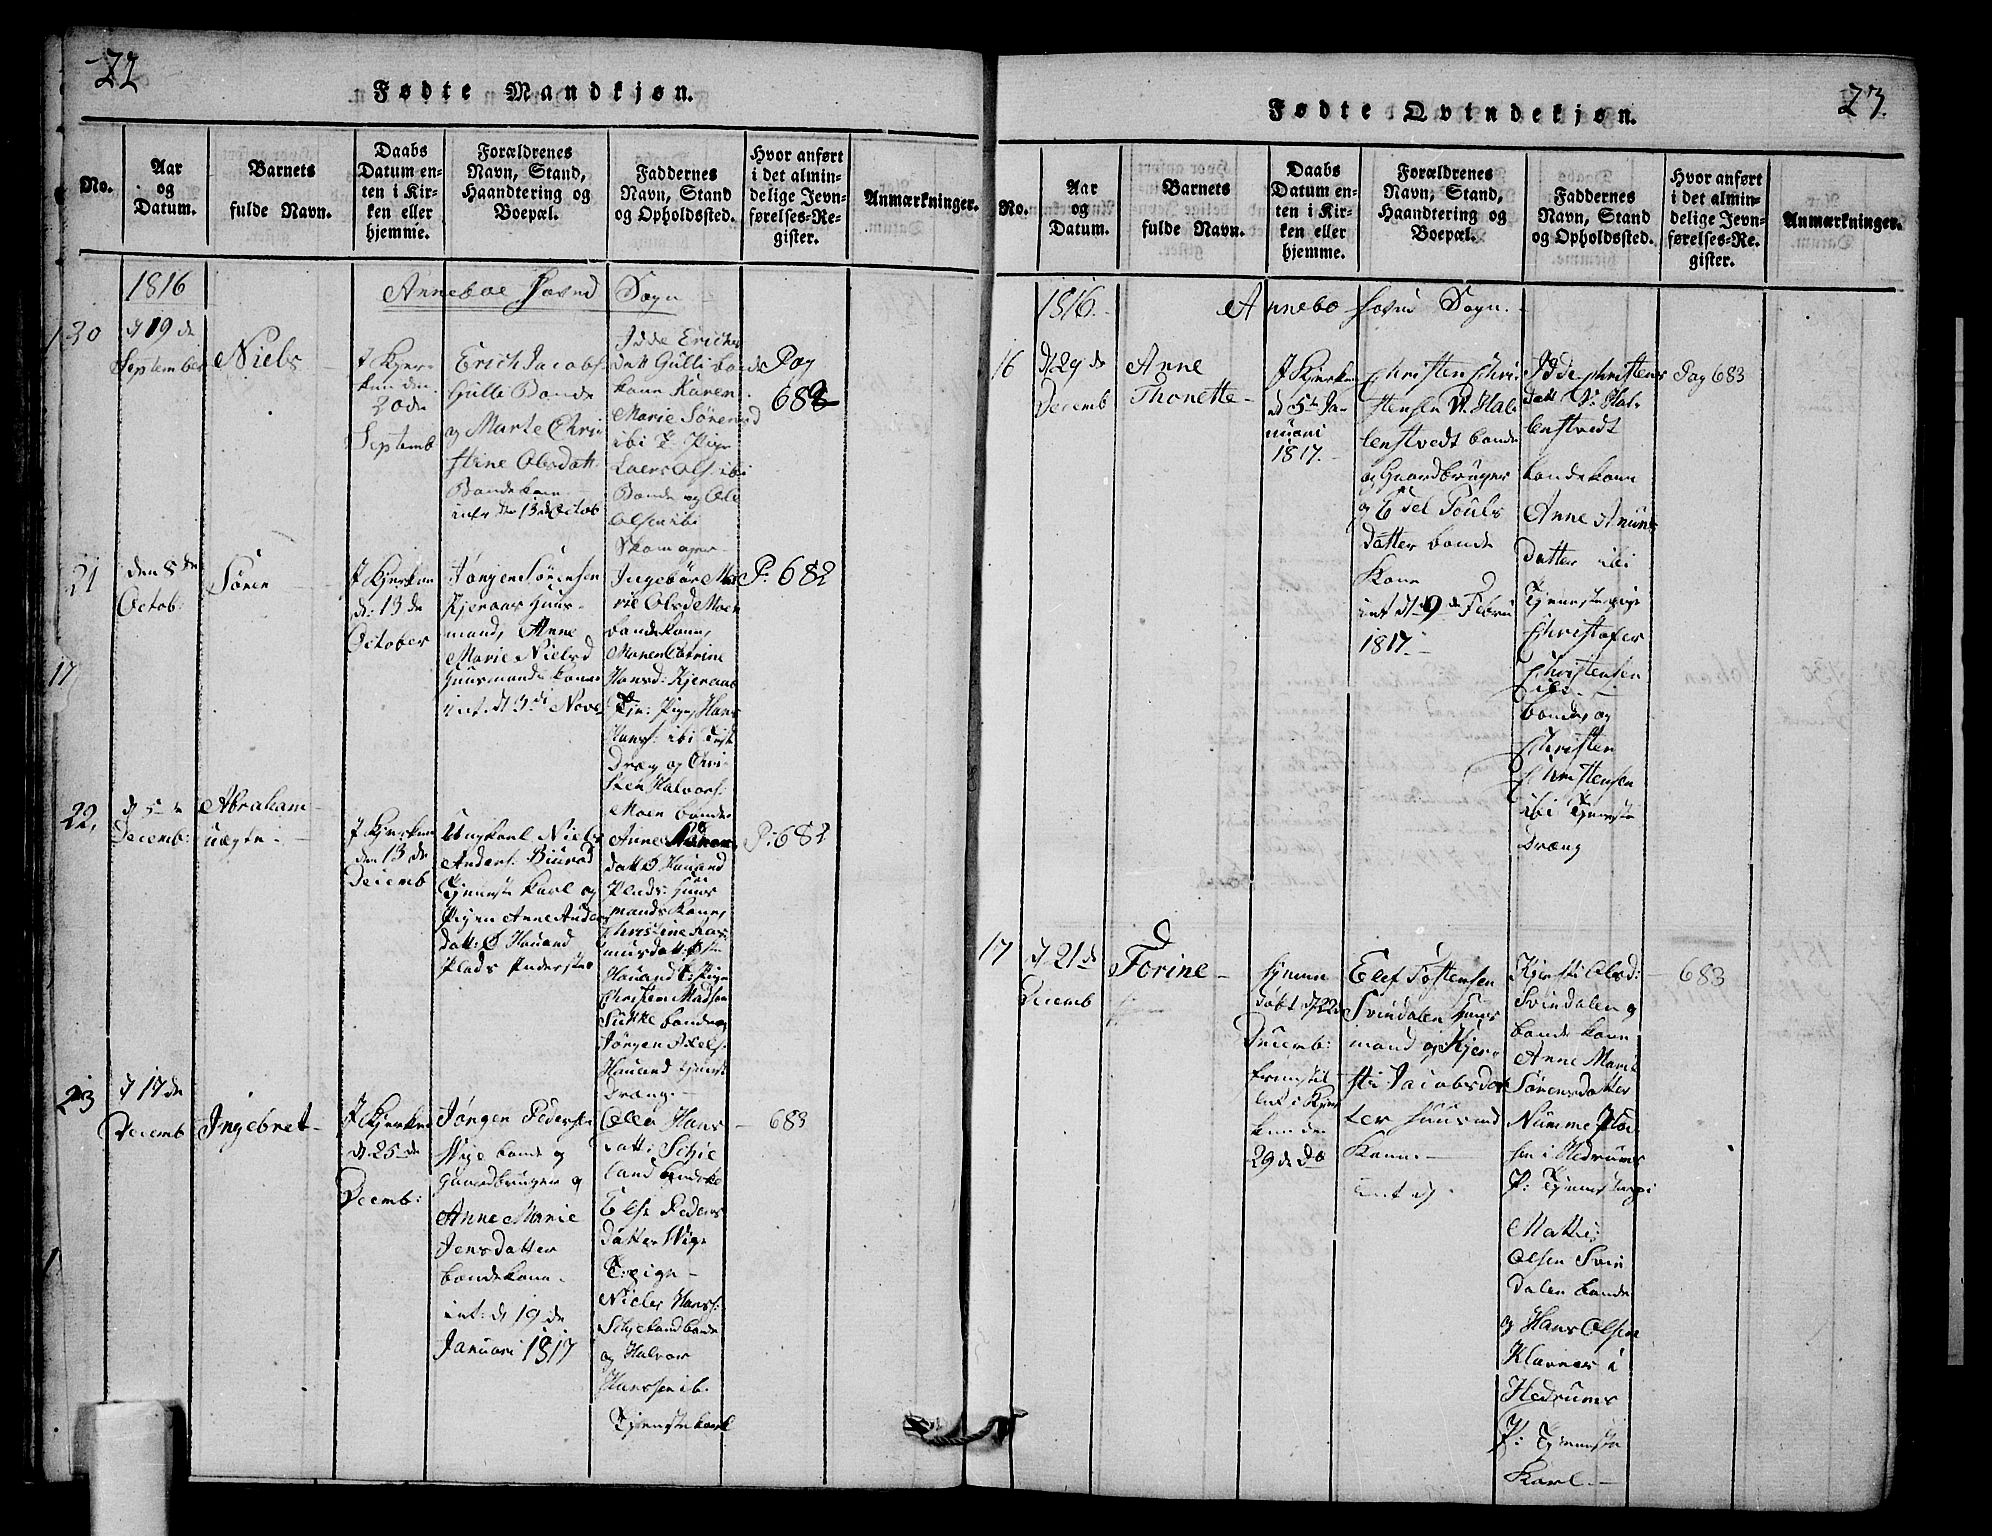 22
Fødte Mandkjøn.
No.
Aar
og
Datum.
Barnets
fulde Navn.
Daabs
Datum en-
ten i Kir-
ken eller
hjemme.
Forældrenes
Navn, Stand,
Haandtering og
Boepæl.
Faddernes
Navn, Stand
og Opholdssted.
Hvor anført
i det almin-
delige Jevn-
førelses-Re-
gister.
Anmærkninger.
1816
Anneboe Sogn
d 19 de
September
Niels
J Kjer-
ken den
20de
Septemb
Erich Jacobs
Gulli Bonde
og Marte Chri
stine Olsdatt
Bondekone
intr den 13 de Octob
Idde Erichs
datt Gulli bonde
kone Karen
Marie Sørensd
ibi
Laers Ols: ibi
Bonde og Ole
Olsen ibi
Skomager
Pag
682
21
den 8 de
Octob:
Sören
J Kjerken
d: 13 de
October
Jörgen Sörensen
Kjeraas Huus-
mand, Anne
Marie Nielsd
Huusmands kone
int: d 3 di Nove
Ingebör Ma
rie Olsd Moen
bondekone,
Maren Catrine
Hansd: Kjeraas
Pige, Hans
Hanss: ibi
Dræng og Chri-
sten Halvors:
Moen bonde
P: 682
17
22,
d 5 te
Decemb:
Abraham
uægte
J Kjerken
den 13 de
Decemb
Ungkarl Niels
Anders:
Tjeneste karl og
Pigen Anne Anders
datt: Ø Hauand
Plads
Anne
datt Ø Hauand
Plads: Huus
mands Kone,
Christine Ras
musdatt: Ø
Hauand T: Pige
Christen Madsen
Sukke bonde og
Jörgen
Hauand tjenst
Dræng
P: 682
23
d 17 de
Decemb
Ingebret
J Kjerken
d 25 de
Decemb:
Jørgen Peders:
Wige bonde og
Gaardbruger og
Anne Marie
Jensdatter
bondekone
int: d 19 de
Januari 1817
Hans
datt: Schie
land bondeko
Else Peders
datter Wige
T: pige
Hans:
bonde
og Halvor
Hanssen ib.
Tjenestekarl
683
23.
Fødte Qvindekjøn.
No.
Aar
og
Datum.
Barnets
fulde Navn.
Daabs
Datum en-
ten i Kir-
ken eller
hjemme.
Forældrenes
Navn, Stand,
Haandtering og
Boepæl.
Faddernes
Navn, Stand
og Opholdssted.
Hvor anført
i det almin-
delige Jevn-
førelses-Re-
gister.
Anmærkninger.
1816.
Annebo Sogn.
16
d 29 de
Decemb
Anne
Thonette
J Kjerken
d 5te Ja-
nuari
1817.
Christen Chri
stensen
lenstvedt bonde
og Gaardbruger
og Edel Pouls
datter bonde
Kone
int d 9 de Febru
1817.
Idde Christens
datt
lenstvedt
bondekone
Anne Amuns
datter ibi
Tjenestepige
Christofer
Christensen
ibi
bonde, og
Christen
Christensen
ibi Tjeneste
Dræng
Pag 683
17
d 21 de
Decemb
Torine
hjemme
døbt d 22
Decemb:
fremstil
let i Kjer
ken den
29 de do
Elef Tostensen
Svindalen Huus
mand og Kjer-
sti Jacobsdat
ter Huusmd
Kone.
int d
Kjersti Olsd:
Svindalen
bonde kone
Anne Marie
Sörensdatter
Numme
i Hedrums
P: Tjenestepi
Mathis
Olsen Svin
dalen bonde
og Hans Olsen
Klavnes i
Hedrums
P: Tjeneste
Karl.
683